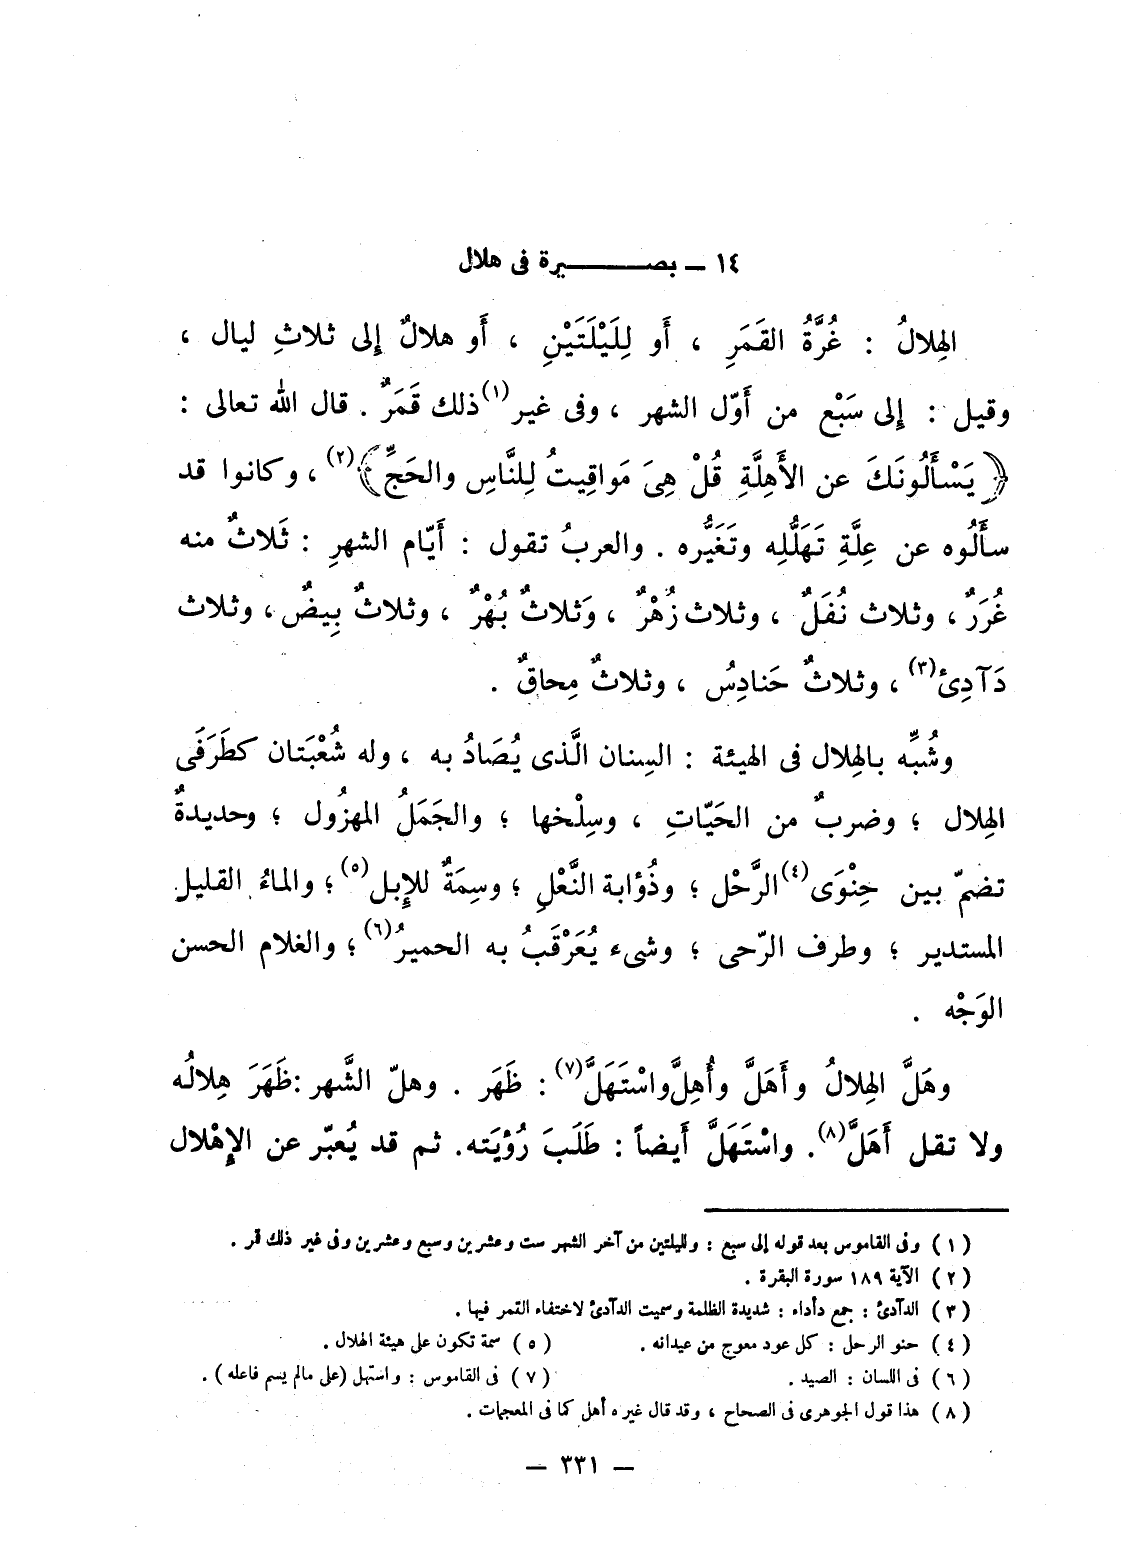 ١٤ – بصيرة فى هلال
الهِلالُ : غُرَّةُ القَمَرِ ، أَو لِلَيْلَتَيْنِ ، أَو هلالٌ إِلى ثلاثِ ليال ،
وقيل : إِلى سَبْع من أَوّل الشهر ، وفى غير(١) ذلك قَمَرٌ . قال الله تعالى :
﴿ يَسْأَلُونَكَ عن الأَهِلَّةِ قُلْ هِىَ مَواقِيتُ لِلنَّاسِ والحَجِّ ﴾(٢) ، وكانوا قد
سأَلُوه عن عِلَّةِ تَهَلُّلِه وتَغَيُّره . والعربُ تقول : أَيّام الشهرِ : ثَلاثٌ منه
غُرَرٌ ، وثلاث نُفَلٌ ، وثلاث زُهْرٌ ، وَثلاثٌ بُهْرٌ ، وثلاثٌ بِيضٌ ، وثلاث
دَآدِئ(٣) ، وثلاثٌ حَنادِسُ ، وثلاثٌ مِحاقٌ .
وشُبِّه بالهِلال فى الهيئة : السِنان الَّذى يُصَادُ به ، وله شُعْبَتان كطَرَفَى
الهِلال ؛ وضربٌ من الحَيّاتِ ، وسِلْخها ؛ والجَمَلُ المهزُول ؛ وحديدةٌ
تضمّ بين حِنْوَى(٤) الرَّحْل ؛ وذُؤابة النَّعْلِ ؛ وسِمَةٌ للإِبل(٥) ؛ والماءُ القليل
المستدير ؛ وطرف الرّحى ؛ وشىء يُعَرْقَبُ به الحميرُ(٦) ؛ والغلام الحسن
الوَجْه .
وهَلَّ الهِلالُ وأَهَلَّ وأُهِلَّ واسْتَهَلَّ(٧) : ظَهَر . وهلّ الشَّهر : ظَهَرَ هِلالُه
ولا تقل أَهَلَّ(٨) . واسْتَهَلَّ أَيضاً : طَلَبَ رُؤيَته . ثم قد يُعبّر عن الإِهْلال
(١) وفى القاموس بعد قوله إلى سبع : ولليلتين من آخر الشهر ست وعشرين وسبع وعشرين وفى غير ذلك قمر .
(٢) الآية ١٨٩ سورة البقرة .
(٣) الدآدئ : جمع دأداء : شديدة الظلمة وسميت الدآدئ لاختفاء القمر فيها .
(٤) حنو الرحل : كل عود معوج من عيدانه . (٥) سمة تكون على هيئة الهلال .
(٦) فى اللسان : الصيد . (٧) فى القاموس : واستهل (على مالم يسم فاعله) .
(٨) هذا قول الجوهرى فى الصحاح ، وقد قال غيره أهل كما فى المعجمات .
– ٣٣١ –